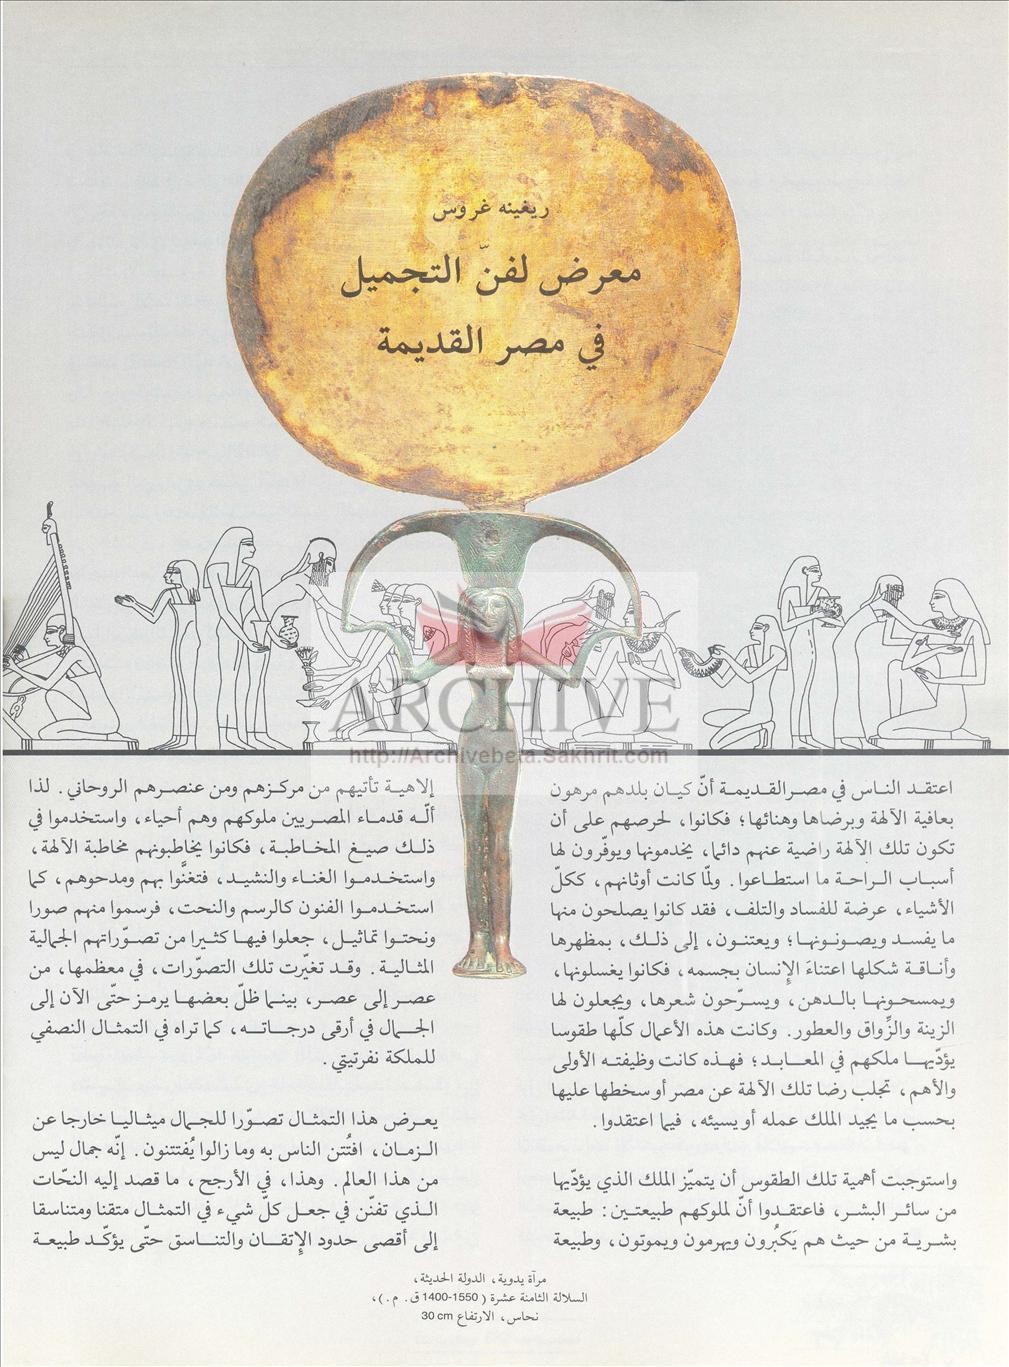 ريغينه غروس
معرض لفنّ التجميل
في مصر القديمة
ARCHIVE
http://Archivebeta.Sakhrit.com
اعتقد الناس في مصر القديمة أنّ كيان بلدهم مرهون
بعافية الآلهة وبرضاها وهنائها؛ فكانوا، لحرصهم على أن
تكون تلك الآلهة راضية عنهم دائما، يخدمونها ويوفّرون لها
أسباب الراحة ما استطاعوا. ولمّا كانت أوثانهم، ككلّ
الأشياء، عرضة للفساد والتلف، فقد كانوا يصلحون منها
ما يفسد ويصونونها؛ ويعتنون، إلى ذلك، بمظهرها
وأناقة شكلها اعتناءَ الإنسان بجسمه، فكانوا يغسلونها،
ويمسحونها بالدهن، ويسرّحون شعرها، ويجعلون لها
الزينة والزِّواق والعطور. وكانت هذه الأعمال كلّها طقوسا
يؤدّيها ملكهم في المعابد؛ فهذه كانت وظيفته الأولى
والأهم، تجلب رضا تلك الآلهة عن مصر أو سخطها عليها
بحسب ما يجيد الملك عمله أو يسيئه، فيما اعتقدوا.
واستوجبت أهمية تلك الطقوس أن يتميّز الملك الذي يؤدّيها
من سائر البشر، فاعتقدوا أنّ لملوكهم طبيعتين: طبيعة
بشرية من حيث هم يَكبُرون ويهرمون ويموتون، وطبيعة
إلاهية تأتيهم من مركزهم ومن عنصرهم الروحاني. لذا
ألّه قدماء المصريين ملوكهم وهم أحياء، واستخدموا في
ذلك صيغ المخاطبة، فكانوا يخاطبونهم مخاطبة الآلهة،
واستخدموا الغناء والنشيد، فتغنَّوا بهم ومدحوهم، كما
استخدموا الفنون كالرسم والنحت، فرسموا منهم صورا
ونحتوا تماثيل، جعلوا فيها كثيرا من تصوّراتهم الجمالية
المثالية. وقد تغيّرت تلك التصوّرات، في معظمها، من
عصر إلى عصر، بينما ظلّ بعضها يرمز حتّى الآن إلى
الجمال في أرقى درجاته، كما تراه في التمثال النصفي
للملكة نفرتيتي.
يعرض هذا التمثال تصوّرا للجمال ميثاليا خارجا عن
الزمان، افتُتن الناس به وما زالوا يُفتتنون. إنّه جمال ليس
من هذا العالم. وهذا، في الأرجح، ما قصد إليه النحّات
الذي تفنّن في جعل كلّ شيء في التمثال متقنا ومتناسقا
إلى أقصى حدود الإتقان والتناسق حتّى يؤكّد طبيعة
مرآة يدوية، الدولة الحديثة،
السلالة الثامنة عشرة (1550-1400 ق. م.)،
نحاس، الارتفاع 30 cm